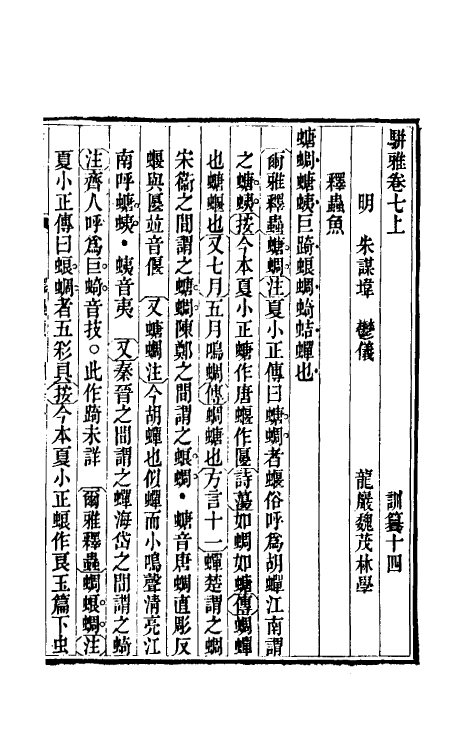 駢雅卷七上 訓纂十四
明 朱謀㙔 鬱儀 龍巖魏茂林學
釋蟲魚
螗蜩螗蛦巨踦蜋蜩蝒蛣蟬也
爾雅釋蟲螗蜩注夏小正傳曰螗蜩者蝘俗呼爲胡蟬江南謂
之螗蛦按今本夏小正螗作唐蝘作匽詩蕩如蜩如螗傳蜩蟬
也螗蝘也又七月五月鳴蜩傳蜩螗也方言十一蟬楚謂之蜩
宋衞之間謂之螗蜩陳鄭之間謂之蜋蜩螗音唐蜩直彫反
蝘與匽竝音偃 又螗蜩注今胡蟬也似蟬而小鳴聲清亮江
南呼螗蛦蛦音夷 又秦晉之間謂之蟬海岱之間謂之䗁
注齊人呼爲巨䗁音技。此作踦未詳 爾雅釋蟲蜩蜋蜩注
夏小正傳曰蜋蜩者五彩具按今本夏小正蜋作良玉篇下虫